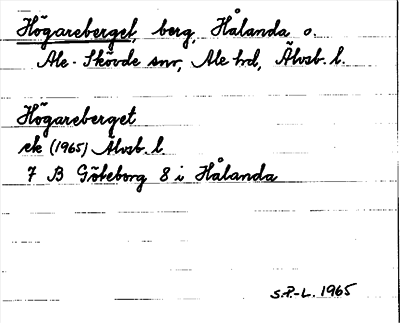 Högareberget, berg, Hålanda o.
Ale-Skövde snr, Ale hd, Älvsb. l.
Högareberget
ek (1965) Älvsb. l.
7 B Göteborg 8 i Hålanda
S.P.-L. 1965